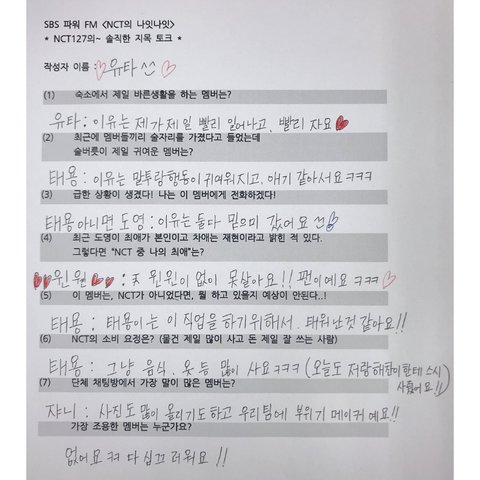 SBS 파워 FM <NCT의 나잇나잇>
* NCT127의~ 솔직한 지목 토크 *
작성자 이름 : ♡유타^^♡
(1) 숙소에서 제일 바른생활을 하는 멤버는?
유타 : 이유는 제가 제일 빨리 일어나고, 빨리 자요♥
(2) 최근에 멤버들끼리 술자리를 가졌다고 들었는데
술버릇이 제일 귀여운 멤버는?
태용 : 이유는 말투랑 행동이 귀여워지고, 애기 같아서요ㅋㅋㅋ
(3) 급한 상황이 생겼다! 나는 이 멤버에게 전화하겠다!
태용아니면 도영 : 이유는 둘다 믿으미 갔어요
(4) 최근 도영이 최애가 본인이고 차애는 재현이라고 밝힌 적 있다.
그렇다면 "NCT 중 나의 최애"는?
♥♥윈윈♥♥ : 天 윈윈이 없이 못살아요!! 팬이예요 ㅋㅋㅋ♡
(5) 이 멤버는, NCT가 아니었다면, 뭘 하고 있을지 예상이 안된다..!
태용 : 태용이는 이 직업을 하기위해서. 태워난것 같아요!!
(6) NCT의 소비 요정은? (물건 제일 많이 사고 돈 제일 잘 쓰는 사람)
태용 : 그냥 음식. 옷 등 많이 사요ㅋㅋㅋ (오늘도 저랑 해찬이한테 스시
사줬어요!!)
(7) 단체 채팅방에서 가장 말이 많은 멤버는?
쟈니 : 사진도 많이 올리기도 하고 우리팀에 부위기 메이커 예요!!
가장 조용한 멤버는 누군가요?
없어요 ㅋㅋ 다 십끄러워요 !!